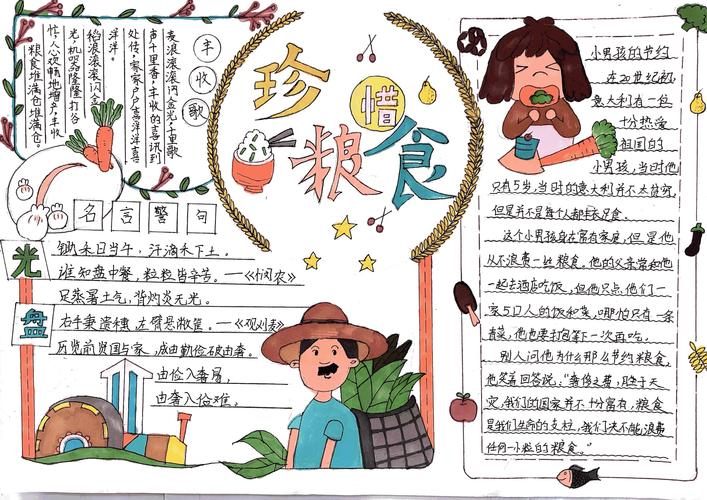 珍惜粮食
丰收歌
麦浪滚滚闪金光,十里歌
声千里香,丰收的喜讯到
处传,家家户户喜洋洋喜
洋洋。
稻浪滚滚闪金
光,机器隆隆打谷
忙,人心欢畅地增产,丰收
粮食堆满仓堆满仓。
名言警句
光盘
锄禾日当午,汗滴禾下土。
谁知盘中餐,粒粒皆辛苦。——《悯农》
足蒸暑土气,背灼炎天光。
右手秉遗穗,左臂悬敝筐。——《观刈麦》
历览前贤国与家,成由勤俭破由奢。
由俭入奢易,
由奢入俭难。
小男孩的节约
在20世纪初,
意大利有一位
十分热爱
祖国的
小男孩,当时他
只有5岁,当时的意大利并不太贫穷,
但是并不是每个人都丰衣足食。
这个小男孩身在富有家庭,但是他
从不浪费一粒粮食。他的父亲常和他
一起去酒店吃饭,但他只点他们一
家5口人的饭和菜,哪怕只有一条
青菜,他也要打包等下一次再吃。
别人问他为什么那么节约粮食,
他笑着回答说,“奢侈之费,甚于天
灾,我们的国家并不十分富有,粮食
是我们生命的支柱,我们决不能浪费
任何一小粒的粮食。”